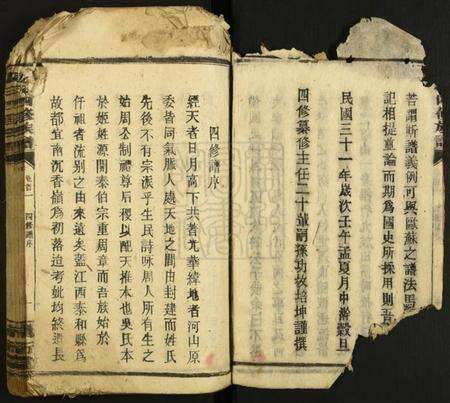 若謂斯譜義例可與歐蘇之譜法馬
記相提並論而期為國史所採用則吾
民國三十一年歲次壬午孟夏月中浣穀旦
四修纂修主任二十華嗣孫功攷培坤謹撰
四修譜序
經天者日月高下共者光華緯地者河山原
委皆同氣脈人處天地之間由封建而姓氏
先後不有宗派乎生民詩咏周人所有生之
始周公制禮尊后稷以配天推本也吳氏本
於姬姓源開泰伯宗重周章而吾族始於
仟祖者流別之由來遠矣藍江西泰和縣為
故都宜南沉香嶺為初落迫考世均終遷長
卷首
四修譜序